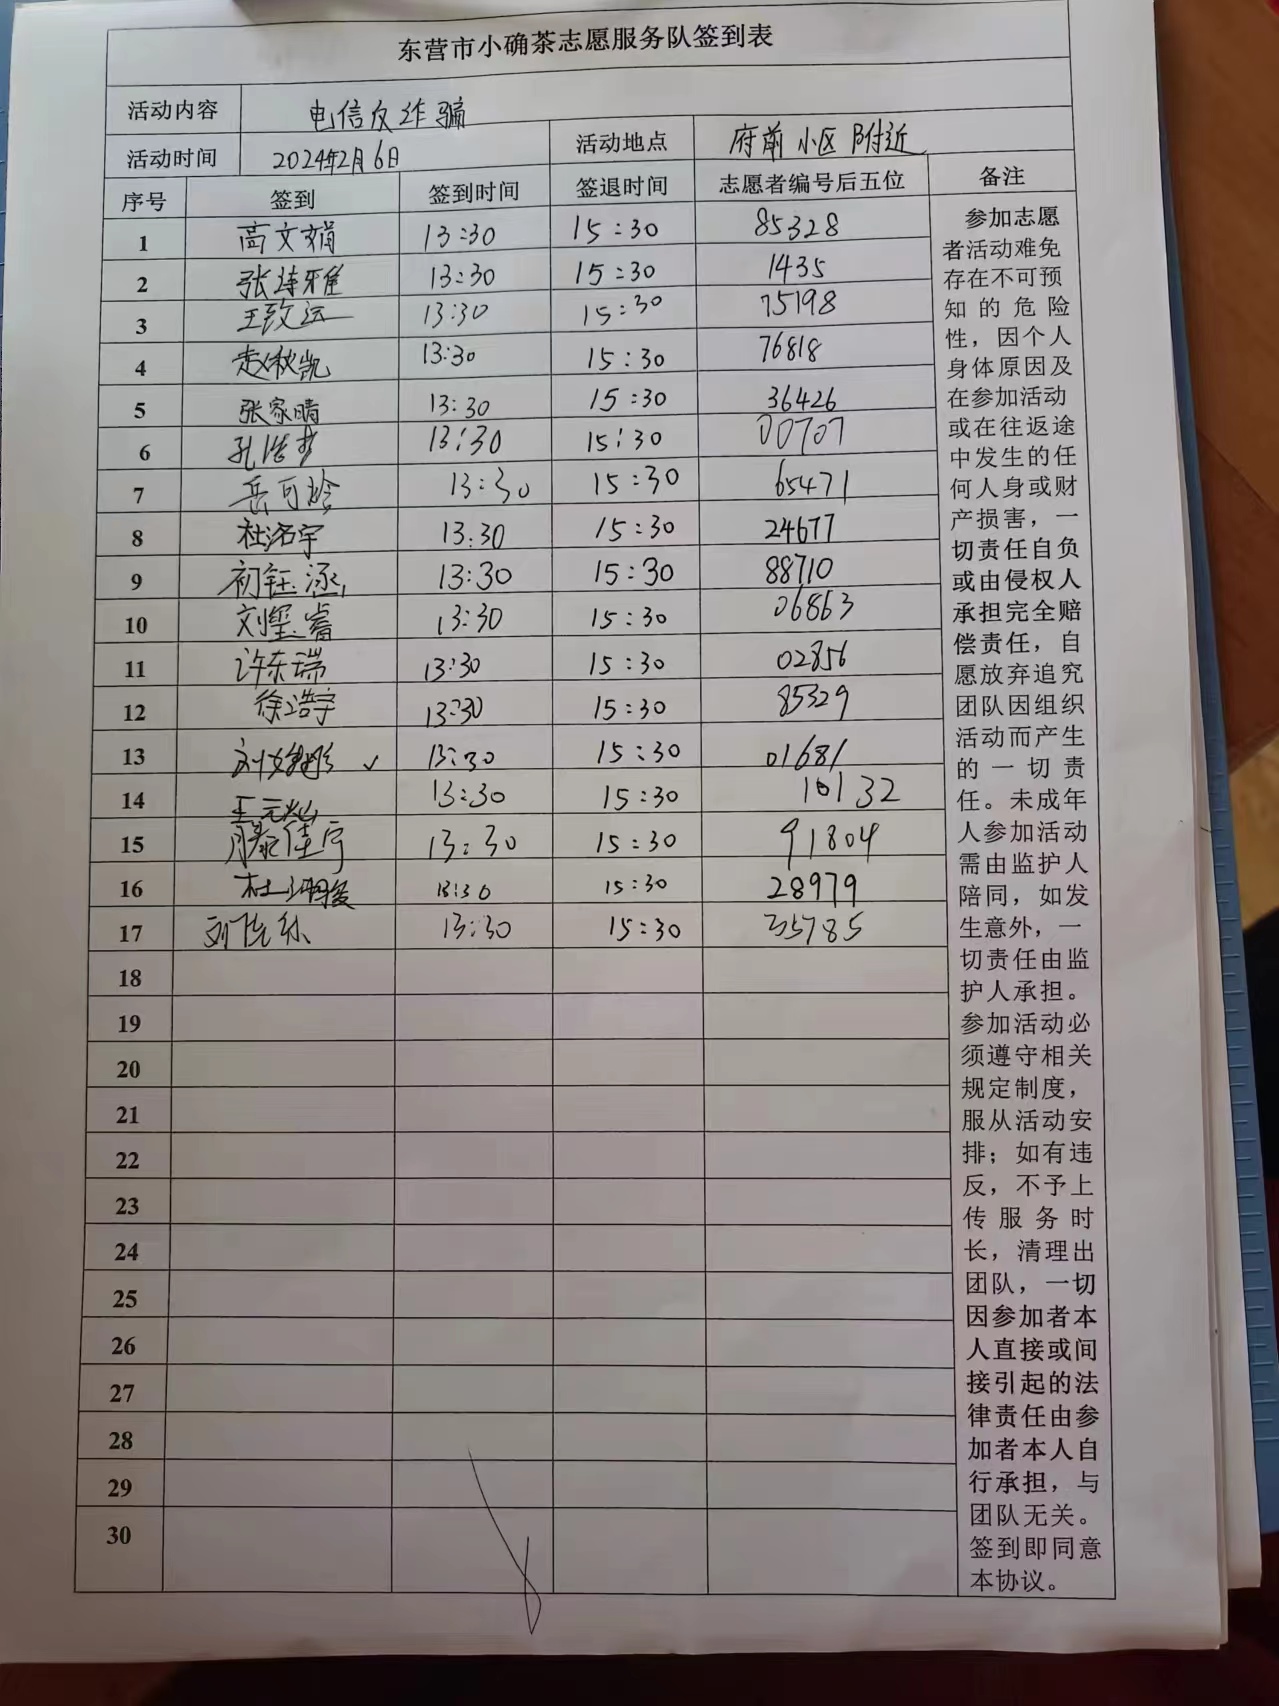 东营市小确茶志愿服务队签到表
活动内容 电信反诈骗
活动时间 2024年2月6日 活动地点 府前小区附近
序号 签到 签到时间 签退时间 志愿者编号后五位 备注
1 高文娟 13:30 15:30 85328
2 张诗雅 13:30 15:30 1435
3 王致远 13:30 15:30 75198
4 赵秋凯 13:30 15:30 76818
5 张家晴 13:30 15:30 36426
6 13:30 15:30 00707
7 岳可 13:30 15:30 65471
8 杜洺宇 13:30 15:30 24677
9 初钰涵 13:30 15:30 88710
10 刘玺睿 13:30 15:30 06863
11 许东瑞 13:30 15:30 02856
12 徐浩宇 13:30 15:30 85329
13 刘 ✓ 13:30 15:30 01681
14 王元灿 13:30 15:30 10132
15 滕佳宇 13:30 15:30 91804
16 杜 13:30 15:30 28979
17 刘 13:30 15:30 35785
18
19
20
21
22
23
24
25
26
27
28
29
30
参加志愿
者活动难免
存在不可预
知的危险
性，因个人
身体原因及
在参加活动
或在往返途
中发生的任
何人身或财
产损害，一
切责任自负
或由侵权人
承担完全赔
偿责任，自
愿放弃追究
团队因组织
活动而产生
的一切责
任。未成年
人参加活动
需由监护人
陪同，如发
生意外，一
切责任由监
护人承担。
参加活动必
须遵守相关
规定制度，
服从活动安
排；如有违
反，不予上
传服务时
长，清理出
团队，一切
因参加者本
人直接或间
接引起的法
律责任由参
加者本人自
行承担，与
团队无关。
签到即同意
本协议。